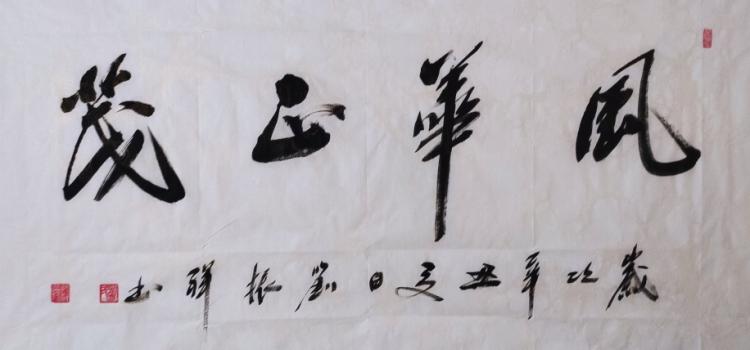 風華正茂
歲次辛丑夏日劉振祥書